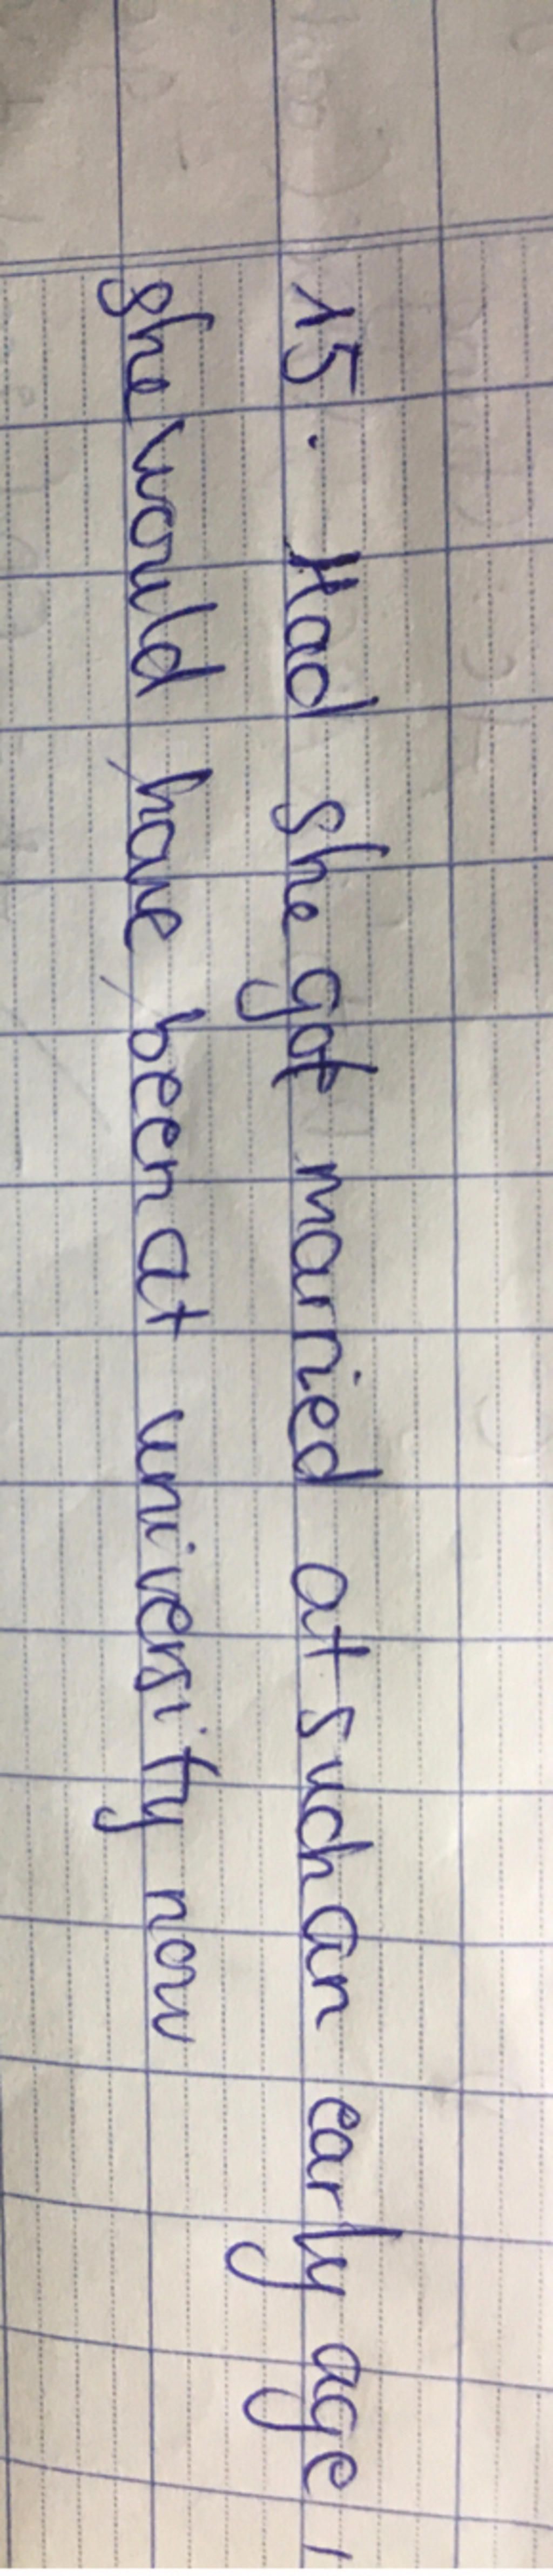 15. Had she got married at such an early age,
she would have been at university now